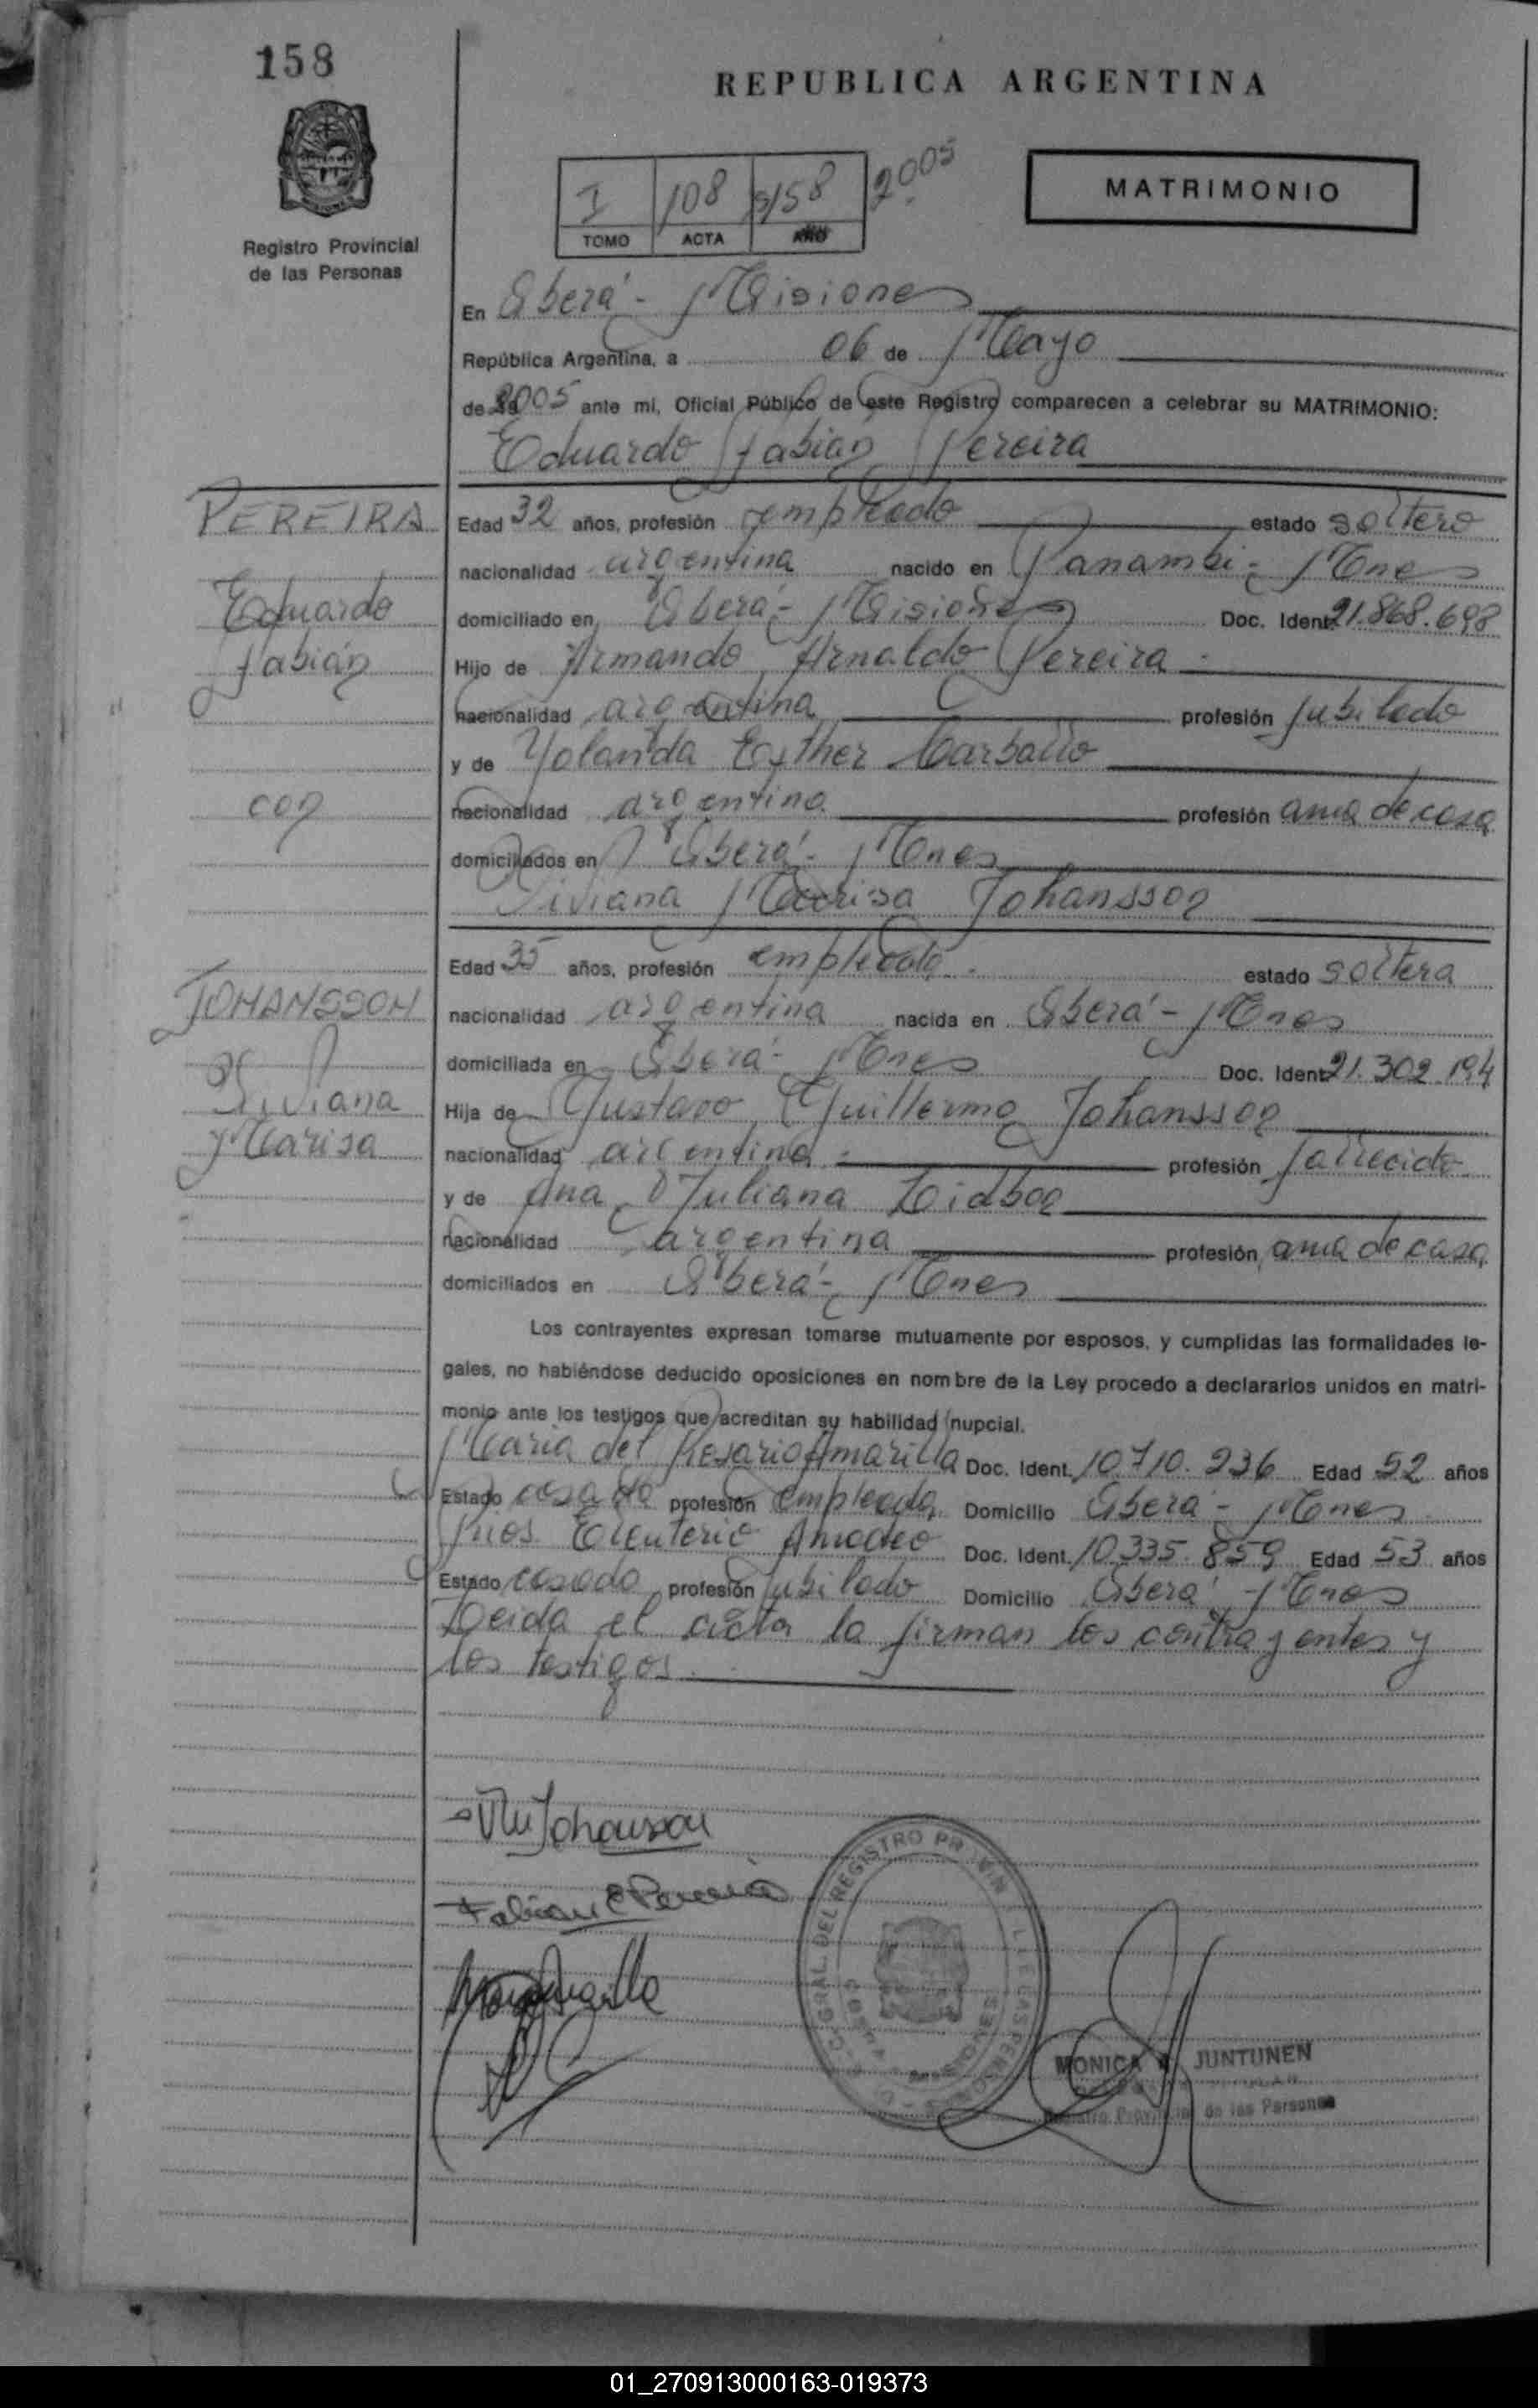 158
REPUBLICA ARGENTINA
Registro Provincial
de las Personas
I 108 158 2005
TOMO ACTA AÑO
MATRIMONIO
En Oberá - Misiones
República Argentina, a 06 de Mayo
de 2005 ante mi, Oficial Público de este Registro comparecen a celebrar su MATRIMONIO:
Eduardo Fabián Pereira
PEREIRA
Eduardo
Fabián
con
JOHANSSON
Viviana
Marisa
Edad 32 años, profesión empleado estado soltero
nacionalidad argentina nacido en Panambi - Mnes
domiciliado en Oberá - Misiones Doc. Ident. 21.868.698
Hijo de Armando Arnaldo Pereira
nacionalidad argentina profesión jubilado
y de Yolanda Esther Carballo
nacionalidad argentina profesión ama de casa
domiciliados en Oberá - Mnes
Viviana Marisa Johansson
Edad 35 años, profesión empleada estado soltera
nacionalidad argentina nacida en Oberá - Mnes
domiciliada en Oberá - Mnes Doc. Ident. 21.302.194
Hija de Gustavo Guillermo Johansson
nacionalidad argentina profesión fallecido
y de Ana Juliana
nacionalidad argentina profesión ama de casa
domiciliados en Oberá - Mnes
Los contrayentes expresan tomarse mutuamente por esposos, y cumplidas las formalidades le-
gales, no habiéndose deducido oposiciones en nombre de la Ley procedo a declararlos unidos en matri-
monio ante los testigos que acreditan su habilidad nupcial.
Maria del Rosario Amarilla Doc. Ident. 10.710.236 Edad 52 años
Estado casada profesión empleada Domicilio Oberá - Mnes
Eleuterio Amadeo Doc. Ident. 10.335.859 Edad 53 años
Estado casado profesión jubilado Domicilio Oberá - Mnes
Leida el acta la firman los contrayentes y
los testigos
Johansson
Fabian E Pereira
MONICA JUNTUNEN
de las Personas
01_270913000163-019373